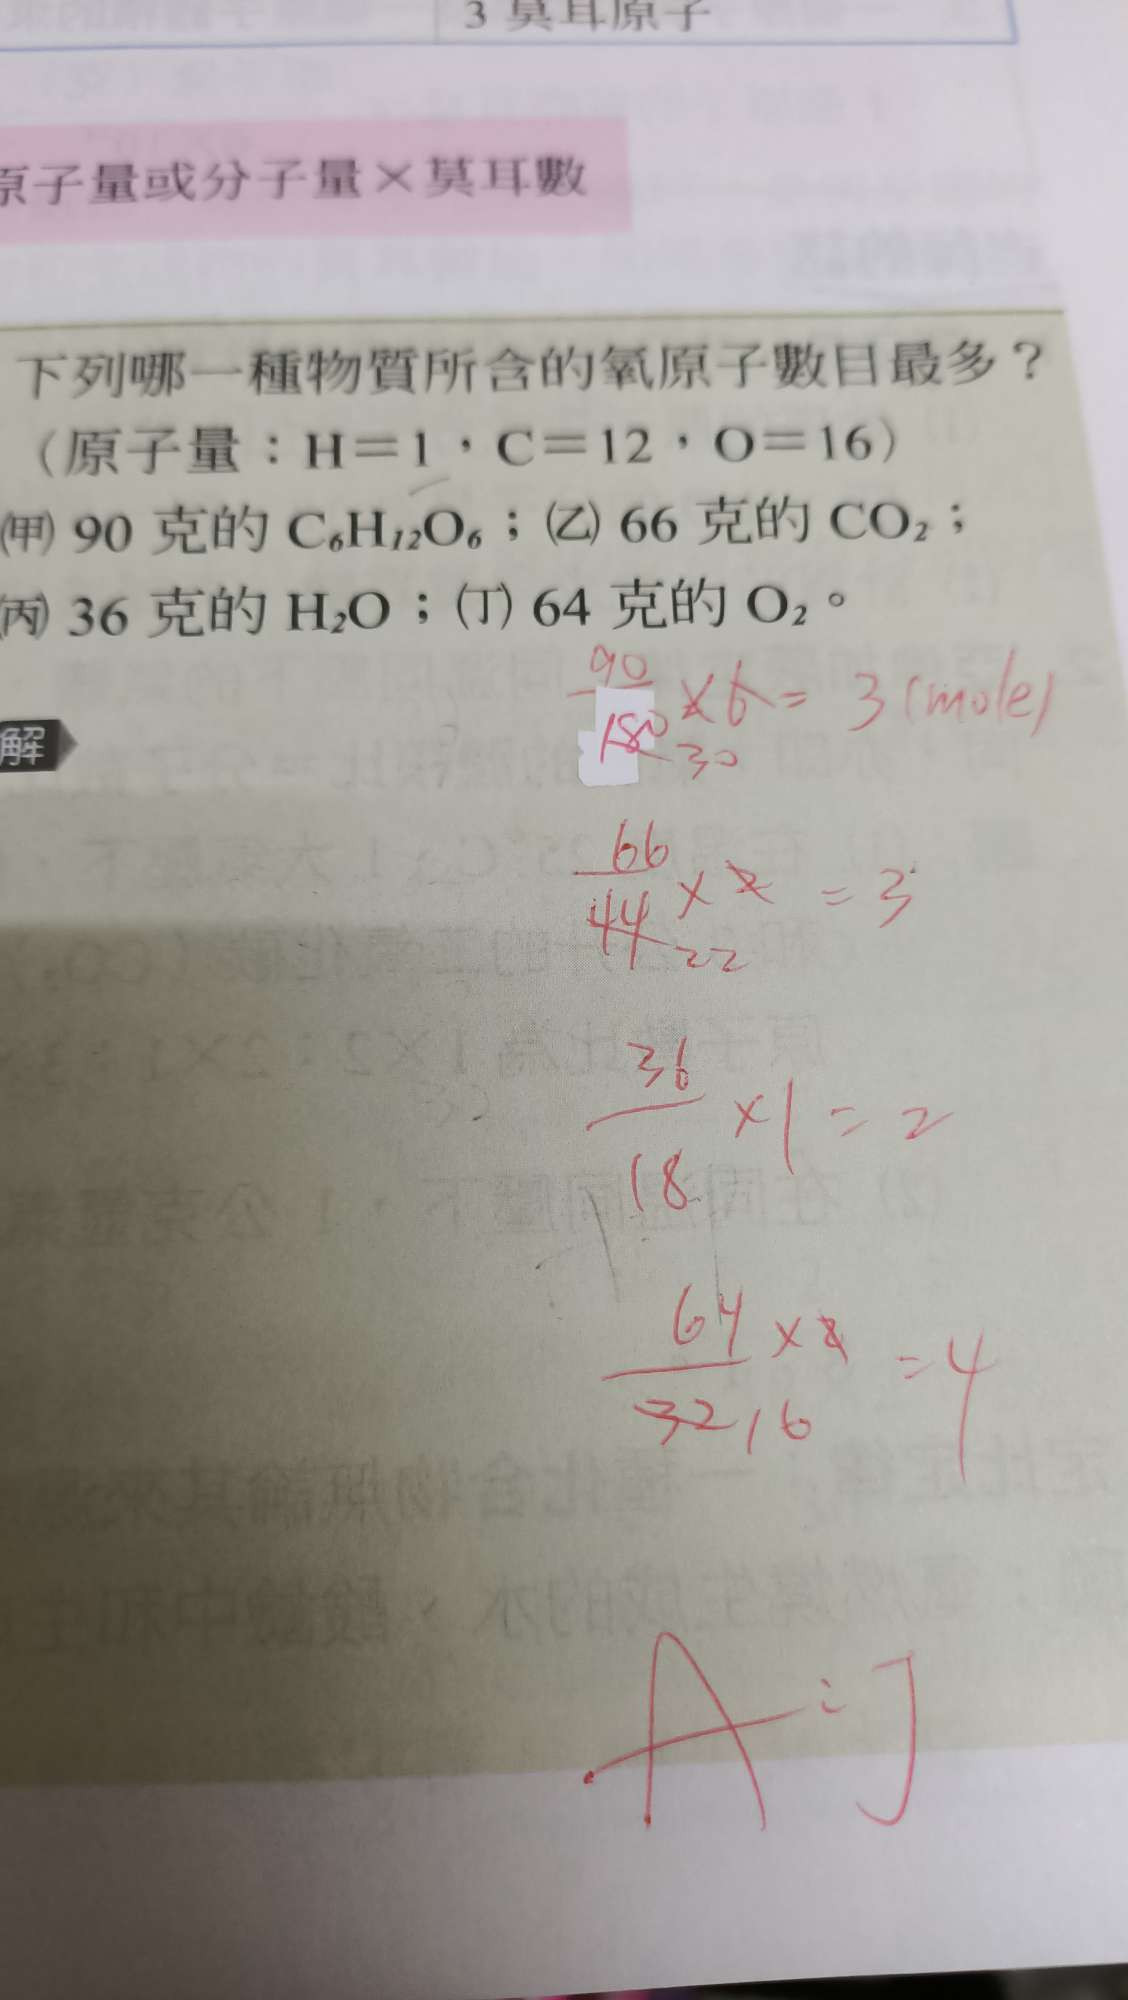 3 莫耳原子
原子量或分子量×莫耳數
下列哪一種物質所含的氧原子數目最多？
（原子量：H＝1，C＝12，O＝16）
(甲) 90 克的 C₆H₁₂O₆；(乙) 66 克的 CO₂；
(丙) 36 克的 H₂O；(丁) 64 克的 O₂。
解
90/180 ×6 = 3 (mole)
30
66/44 ×2 = 3
22
36/18 ×1 = 2
64/32 ×2 = 4
16
A:丁